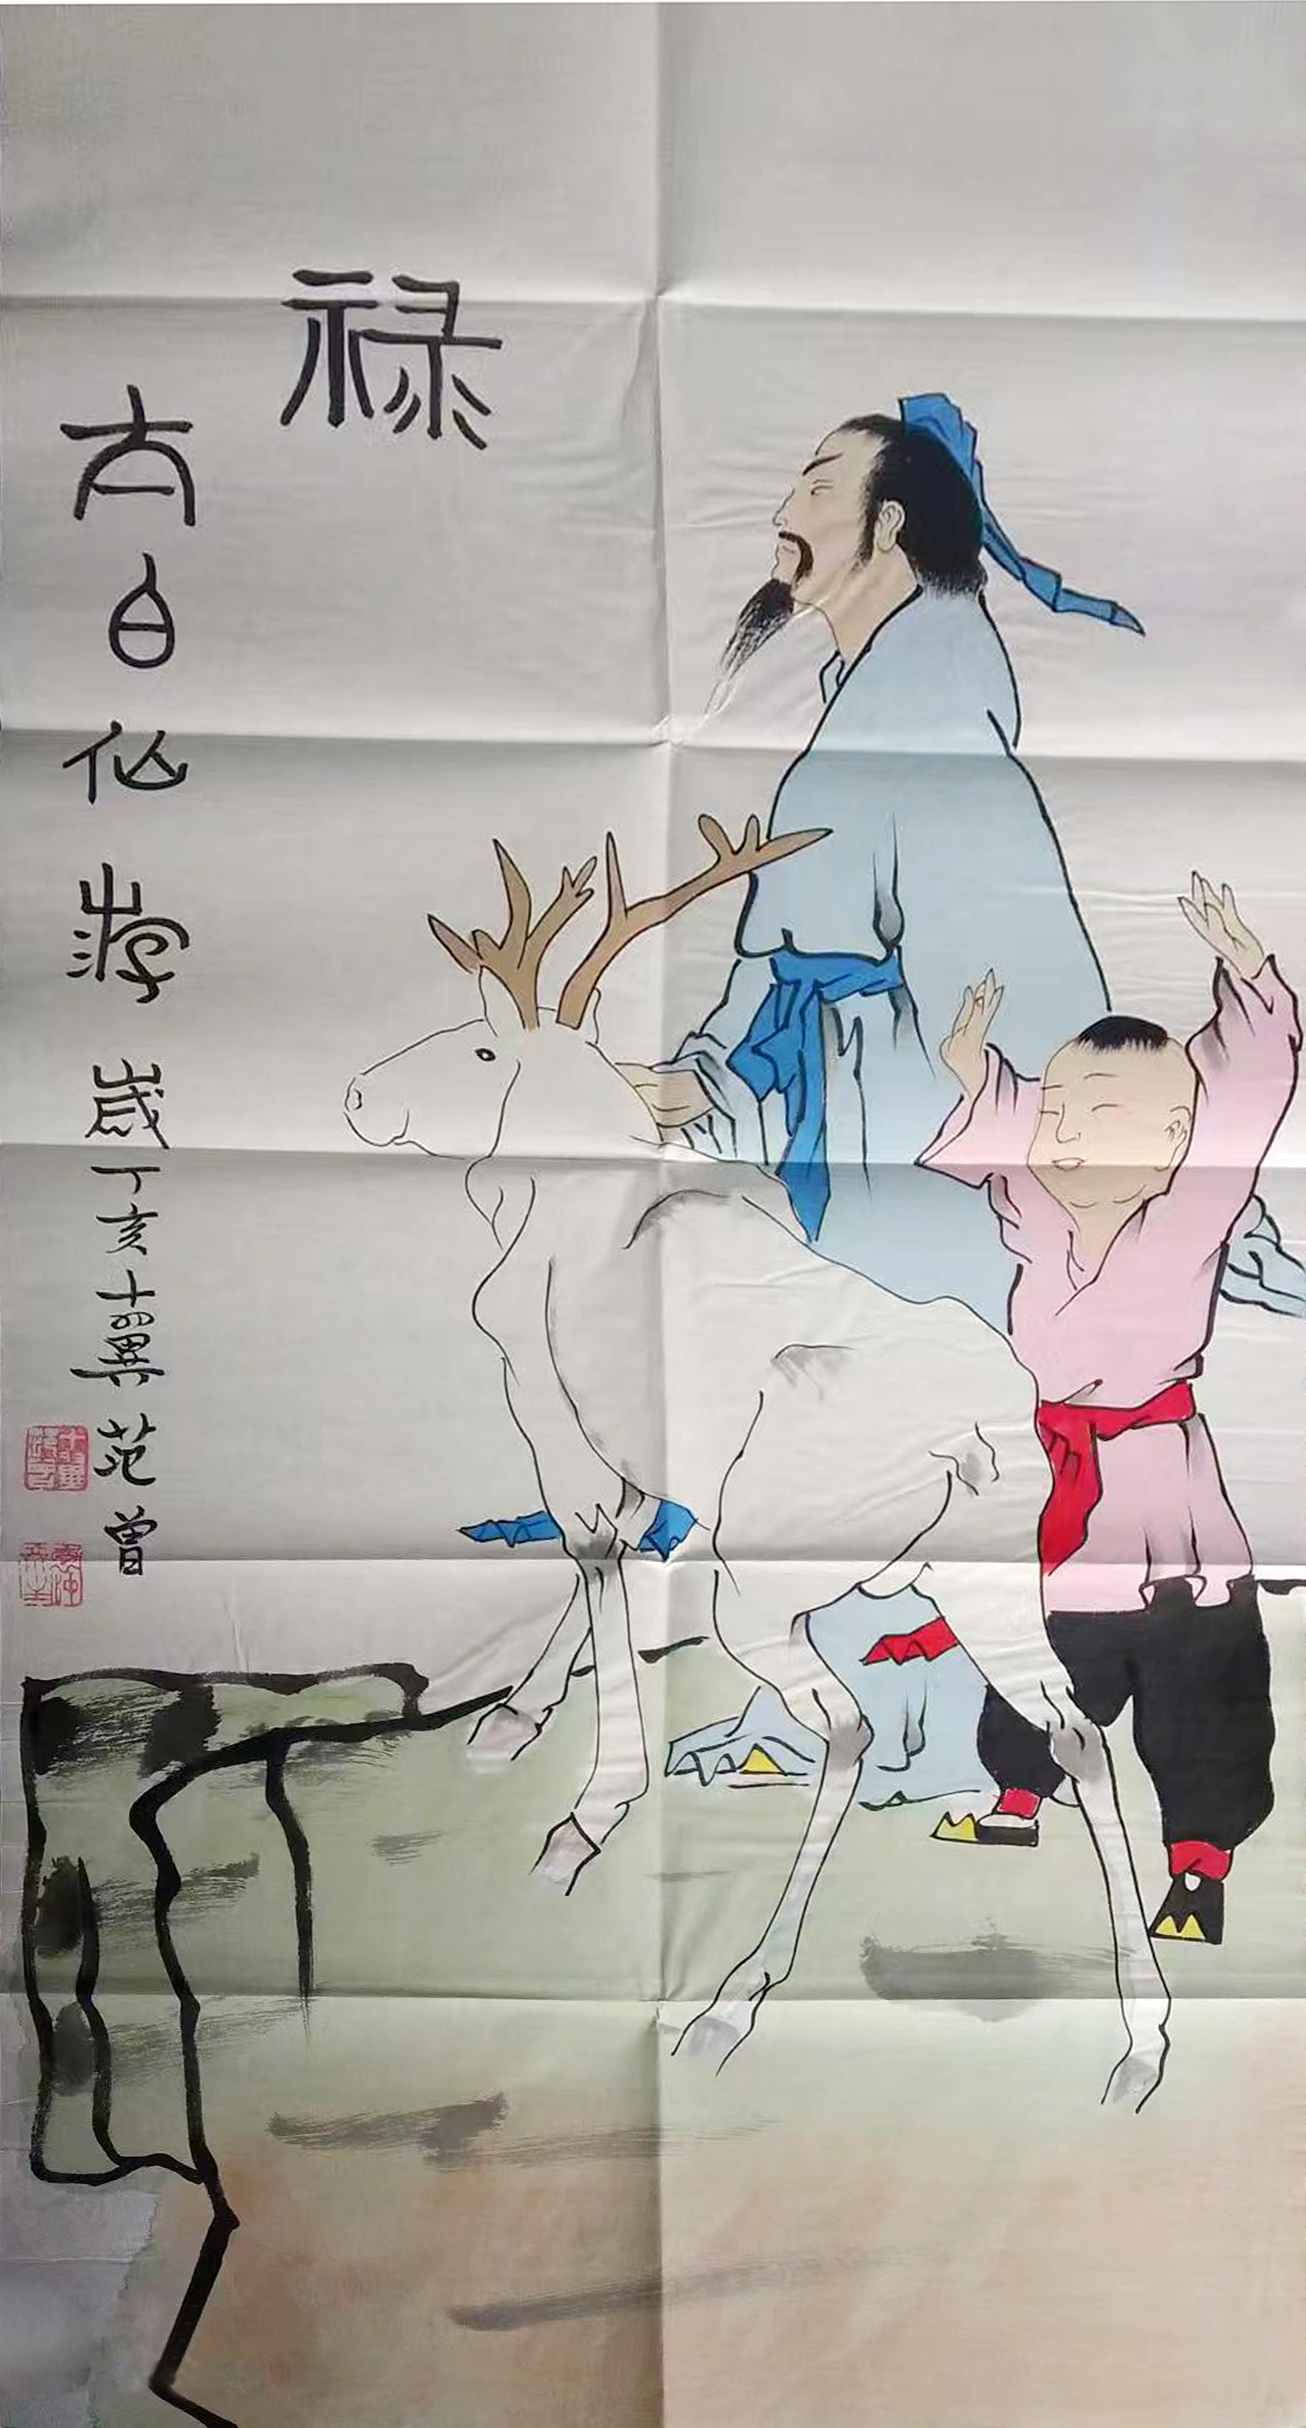 禄
太白仙游 岁丁亥十翼范曾